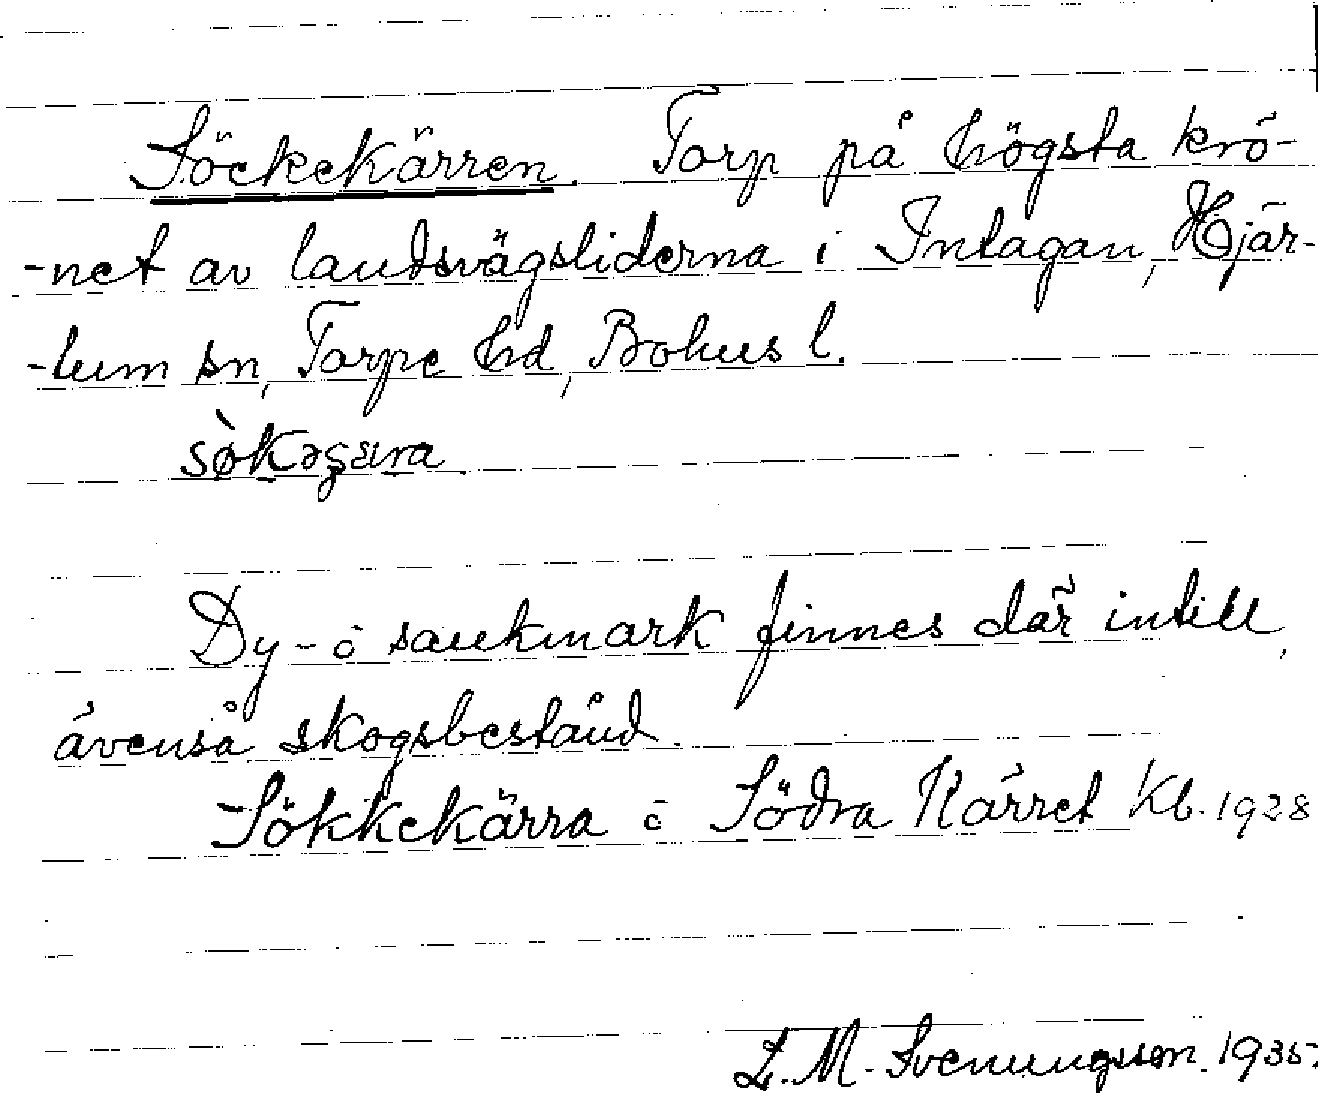 Söckekärren. Torp på högsta krö-
-net av landsvägsliderna i Intagan, Hjär-
-tum sn, Torpe hd, Bohus l.
Dy- o sankmark finnes där intill,
ävenså skogsbestånd.
Sökkekärra o Södra Kärret Kb. 1928
L. M. Svenungsson. 1935.